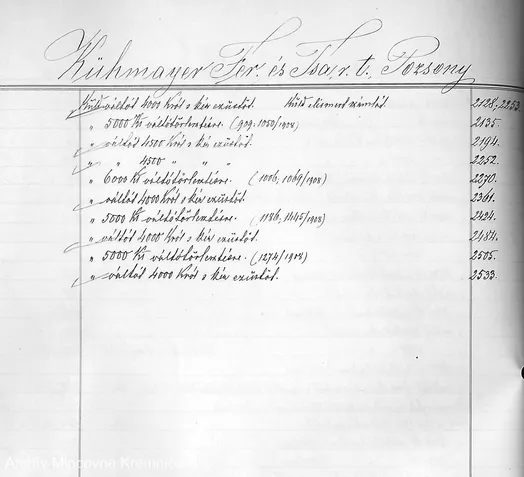 Kühmayer Fer. és Tsa. r. t. Pozsony
Küld váltót 4000 Król s kér ezüstöt. Küld elismert számlát. 2128, 2253
„ 5000 Kt váltótörlesztésre. (909, 1050/908) 2135.
„ váltót 4500 Król s kér ezüstöt. 2194.
„ „ 4500 „ „ „ 2252.
„ 6000 Kt váltótörlesztésre. (1006, 1069/908) 2270.
„ váltót 4000 Król s kér ezüstöt. 2361.
„ 5000 Kt váltótörlesztésre. (1186, 1445/908) 2424.
„ váltót 4000 Król s kér ezüstöt. 2484.
„ 5000 Kt váltótörlesztésre. (1274/908) 2505.
„ váltót 4000 Król s kér ezüstöt. 2533.
Archív Mincovne Kremnica